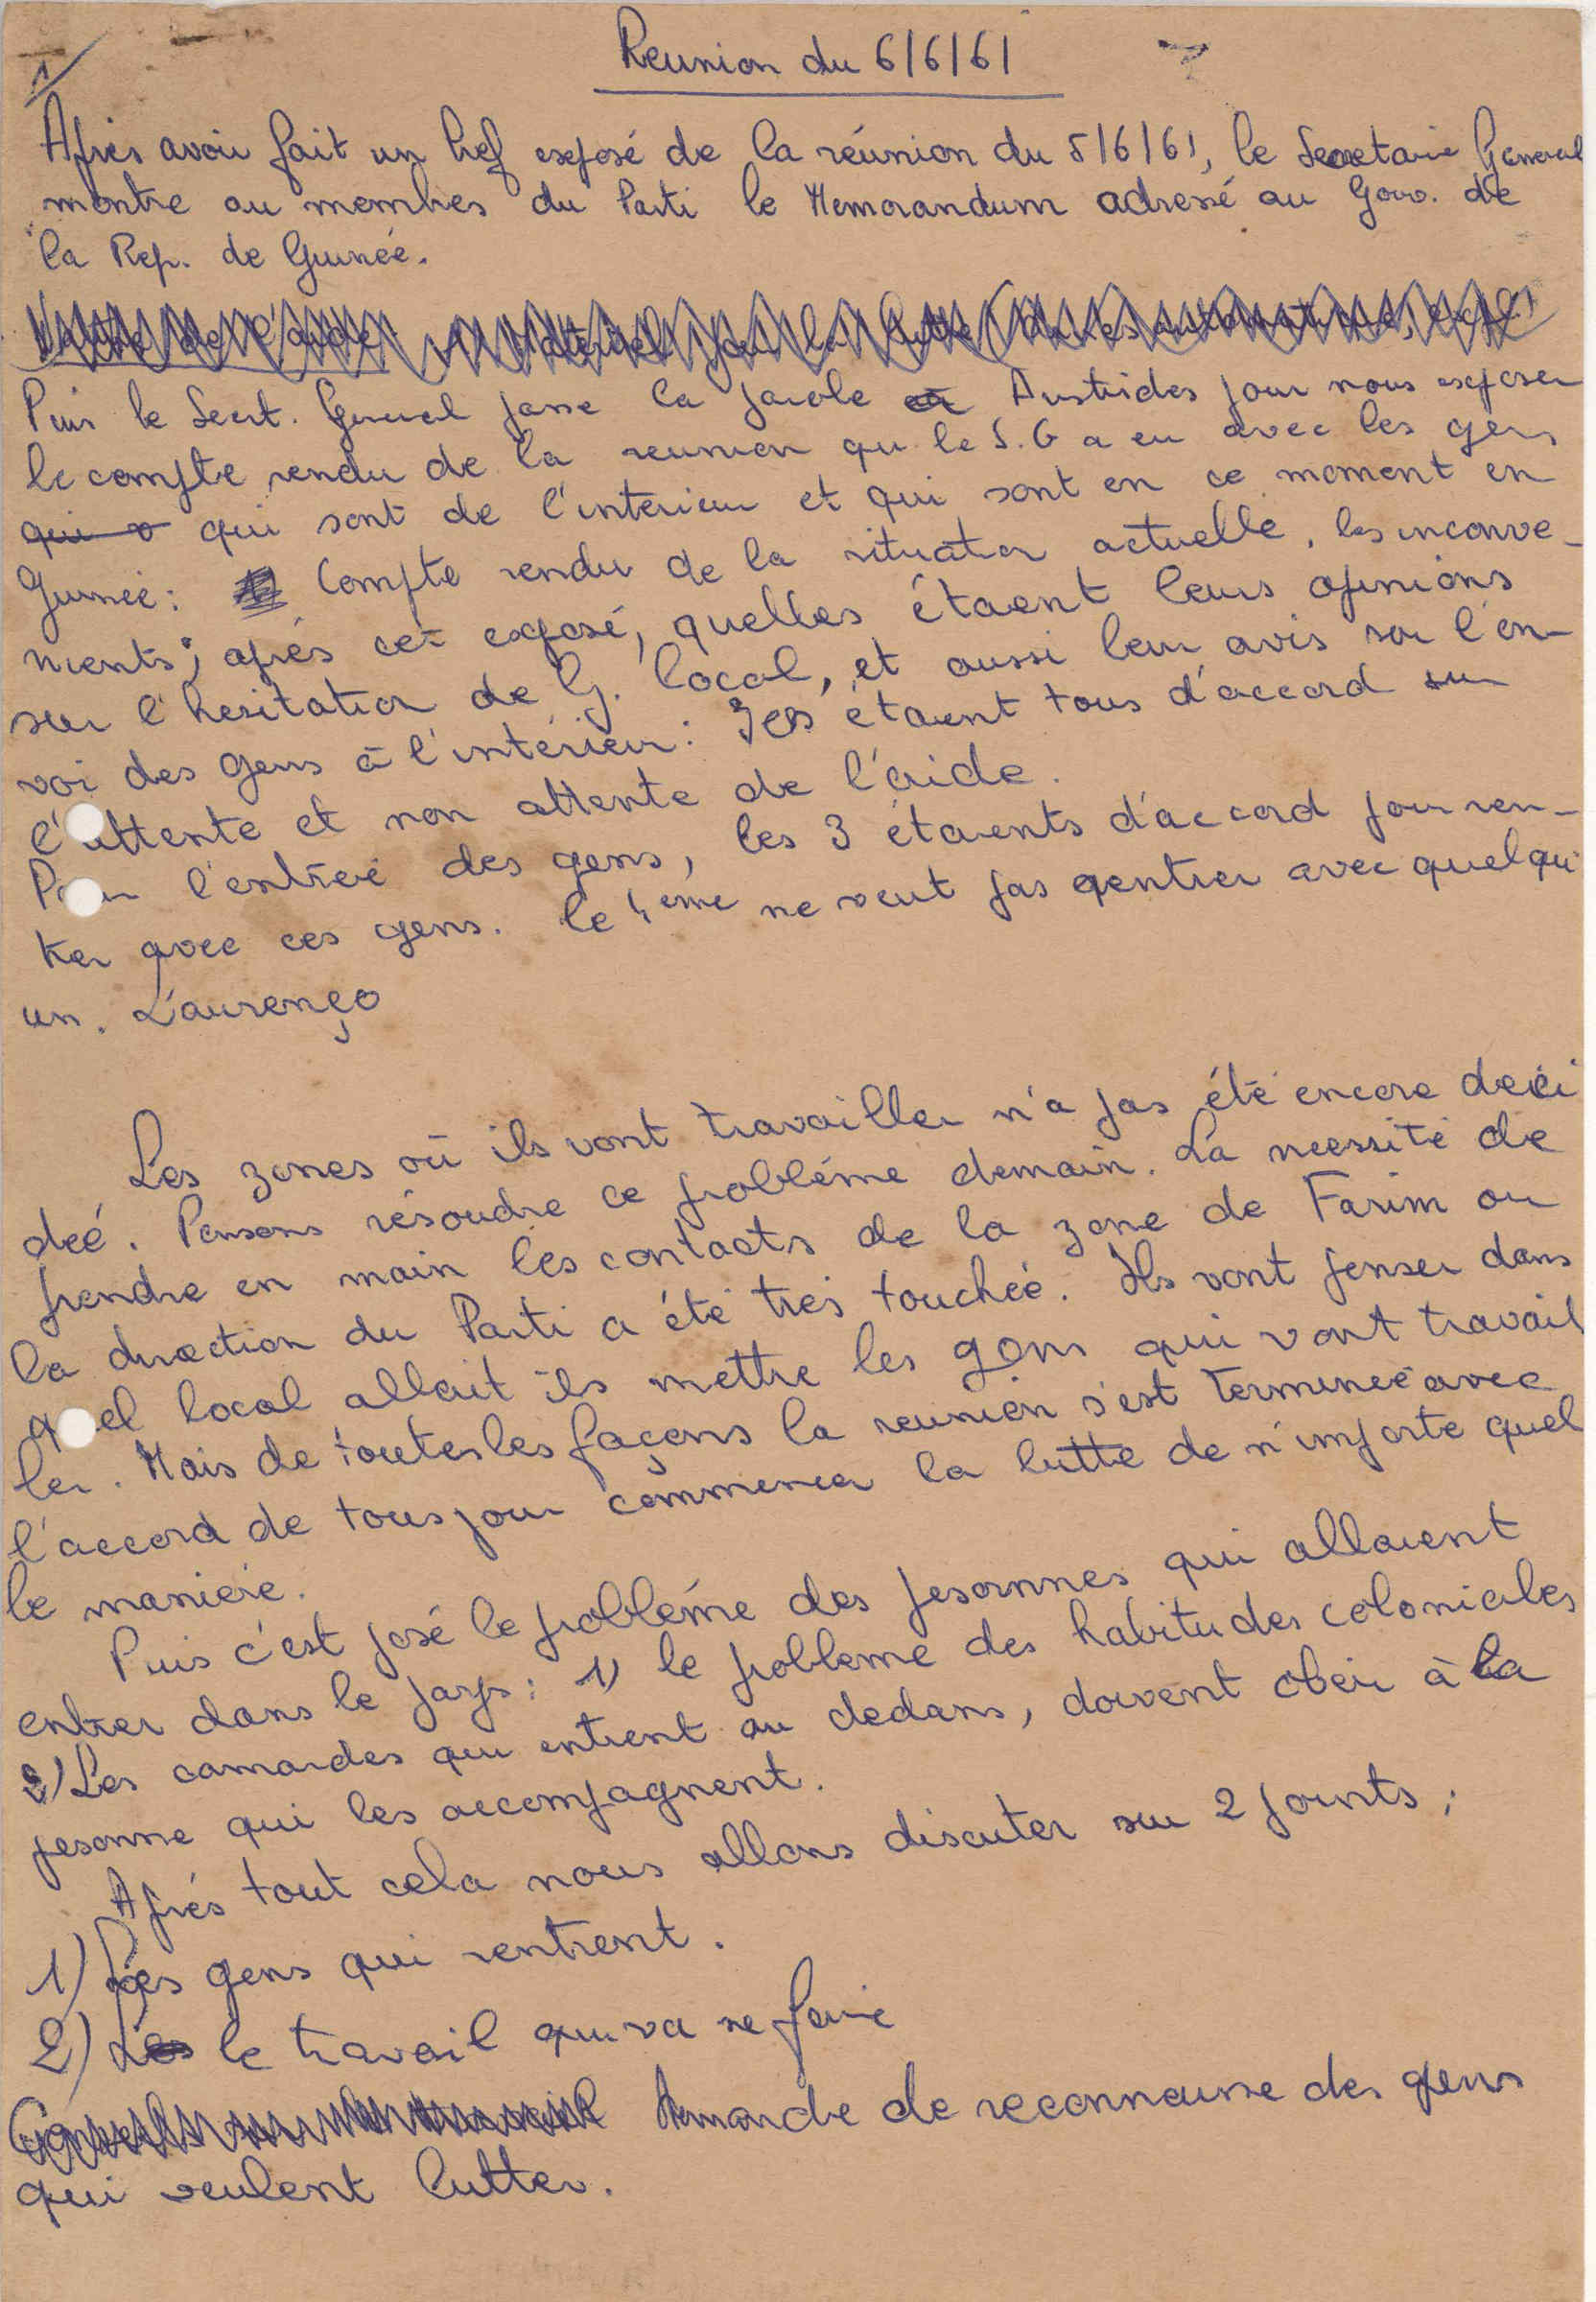 1/
Reunion du 6/6/61
Aprés avoir fait un bref exposé de la réunion du 5/6/61, le Secretaire General
montre au membres du Parti le Memorandum adressé au Gouv. de
la Rep. de Guinée.
Puis le Secrt. General passe la parole Aristides pour nous exposer
le compte rendu de la reunion qu le S.G a eu avec les gens
qui sont de l'interieur et qui sont en ce moment en
Guinée: Compte rendu de la situation actuelle, les inconve-
nients; aprés cet exposé, quelles étaient leurs opinions
sur l'hesitation de G. local, et aussi leur avis sur l'en-
voi des gens à l'intérieur: Ils étaient tous d'accord sur
l'attente et non attente de l'aide.
Pour l'entreé des gens, les 3 étaients d'accord pour ren-
trer avec ces gens. le 4eme ne veut pas rentrer avec quelqu'
un. Laurenço
Les zones où ils vont travailler n'a pas été encore deci
deé. Pensons résoudre ce probléme demain. La necessité de
prendre en main les contacts de la zone de Farim ou
la direction du Parti a été tres toucheé. Ils vont penser dans
quel local allait ils mettre les gens qui vont travail
ler. Mais de toutes les façons la reunion s'est termineé avec
l'accord de tous pour commencer la lutte de n'importe quel
le maniere.
Puis c'est posé le probléme des pesonnes qui allaient
entrer dans le pays: 1) le probleme des habitudes coloniales
2) Les camardes qui entrent au dedans, doivent obeir à la
pesonne qui les accompagnent.
Aprés tout cela nous allons discuter sur 2 points:
1) Les gens qui rentrent.
2) Les le travail qui va se faire
Demande de reconnaisse des gens
qui veulent lutter.